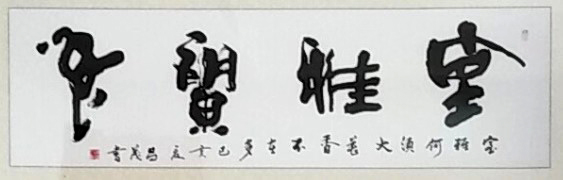 室雅賢
室雅何須大花香不在多己亥夏昌茂書